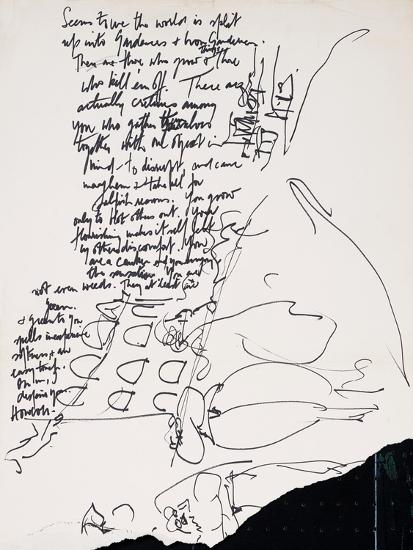 Seems to me the world is split
up into Gardeners & Non Gardeners
There are those who grow things & those
who kill em off. There are
actually creatures among
you who gather themselves
together with one object in
mind - to disrupt and cause
mayhem & take all for
selfish reasons. You grow
only to blot others out. Your
flourishing makes itself felt
in others discomfort. You
are a canker and you enjoy
the sensation. You are
not even weeds. They at least are
Green.
& Green to you
spells inexperience
softness & an
easy touch.
despise you.